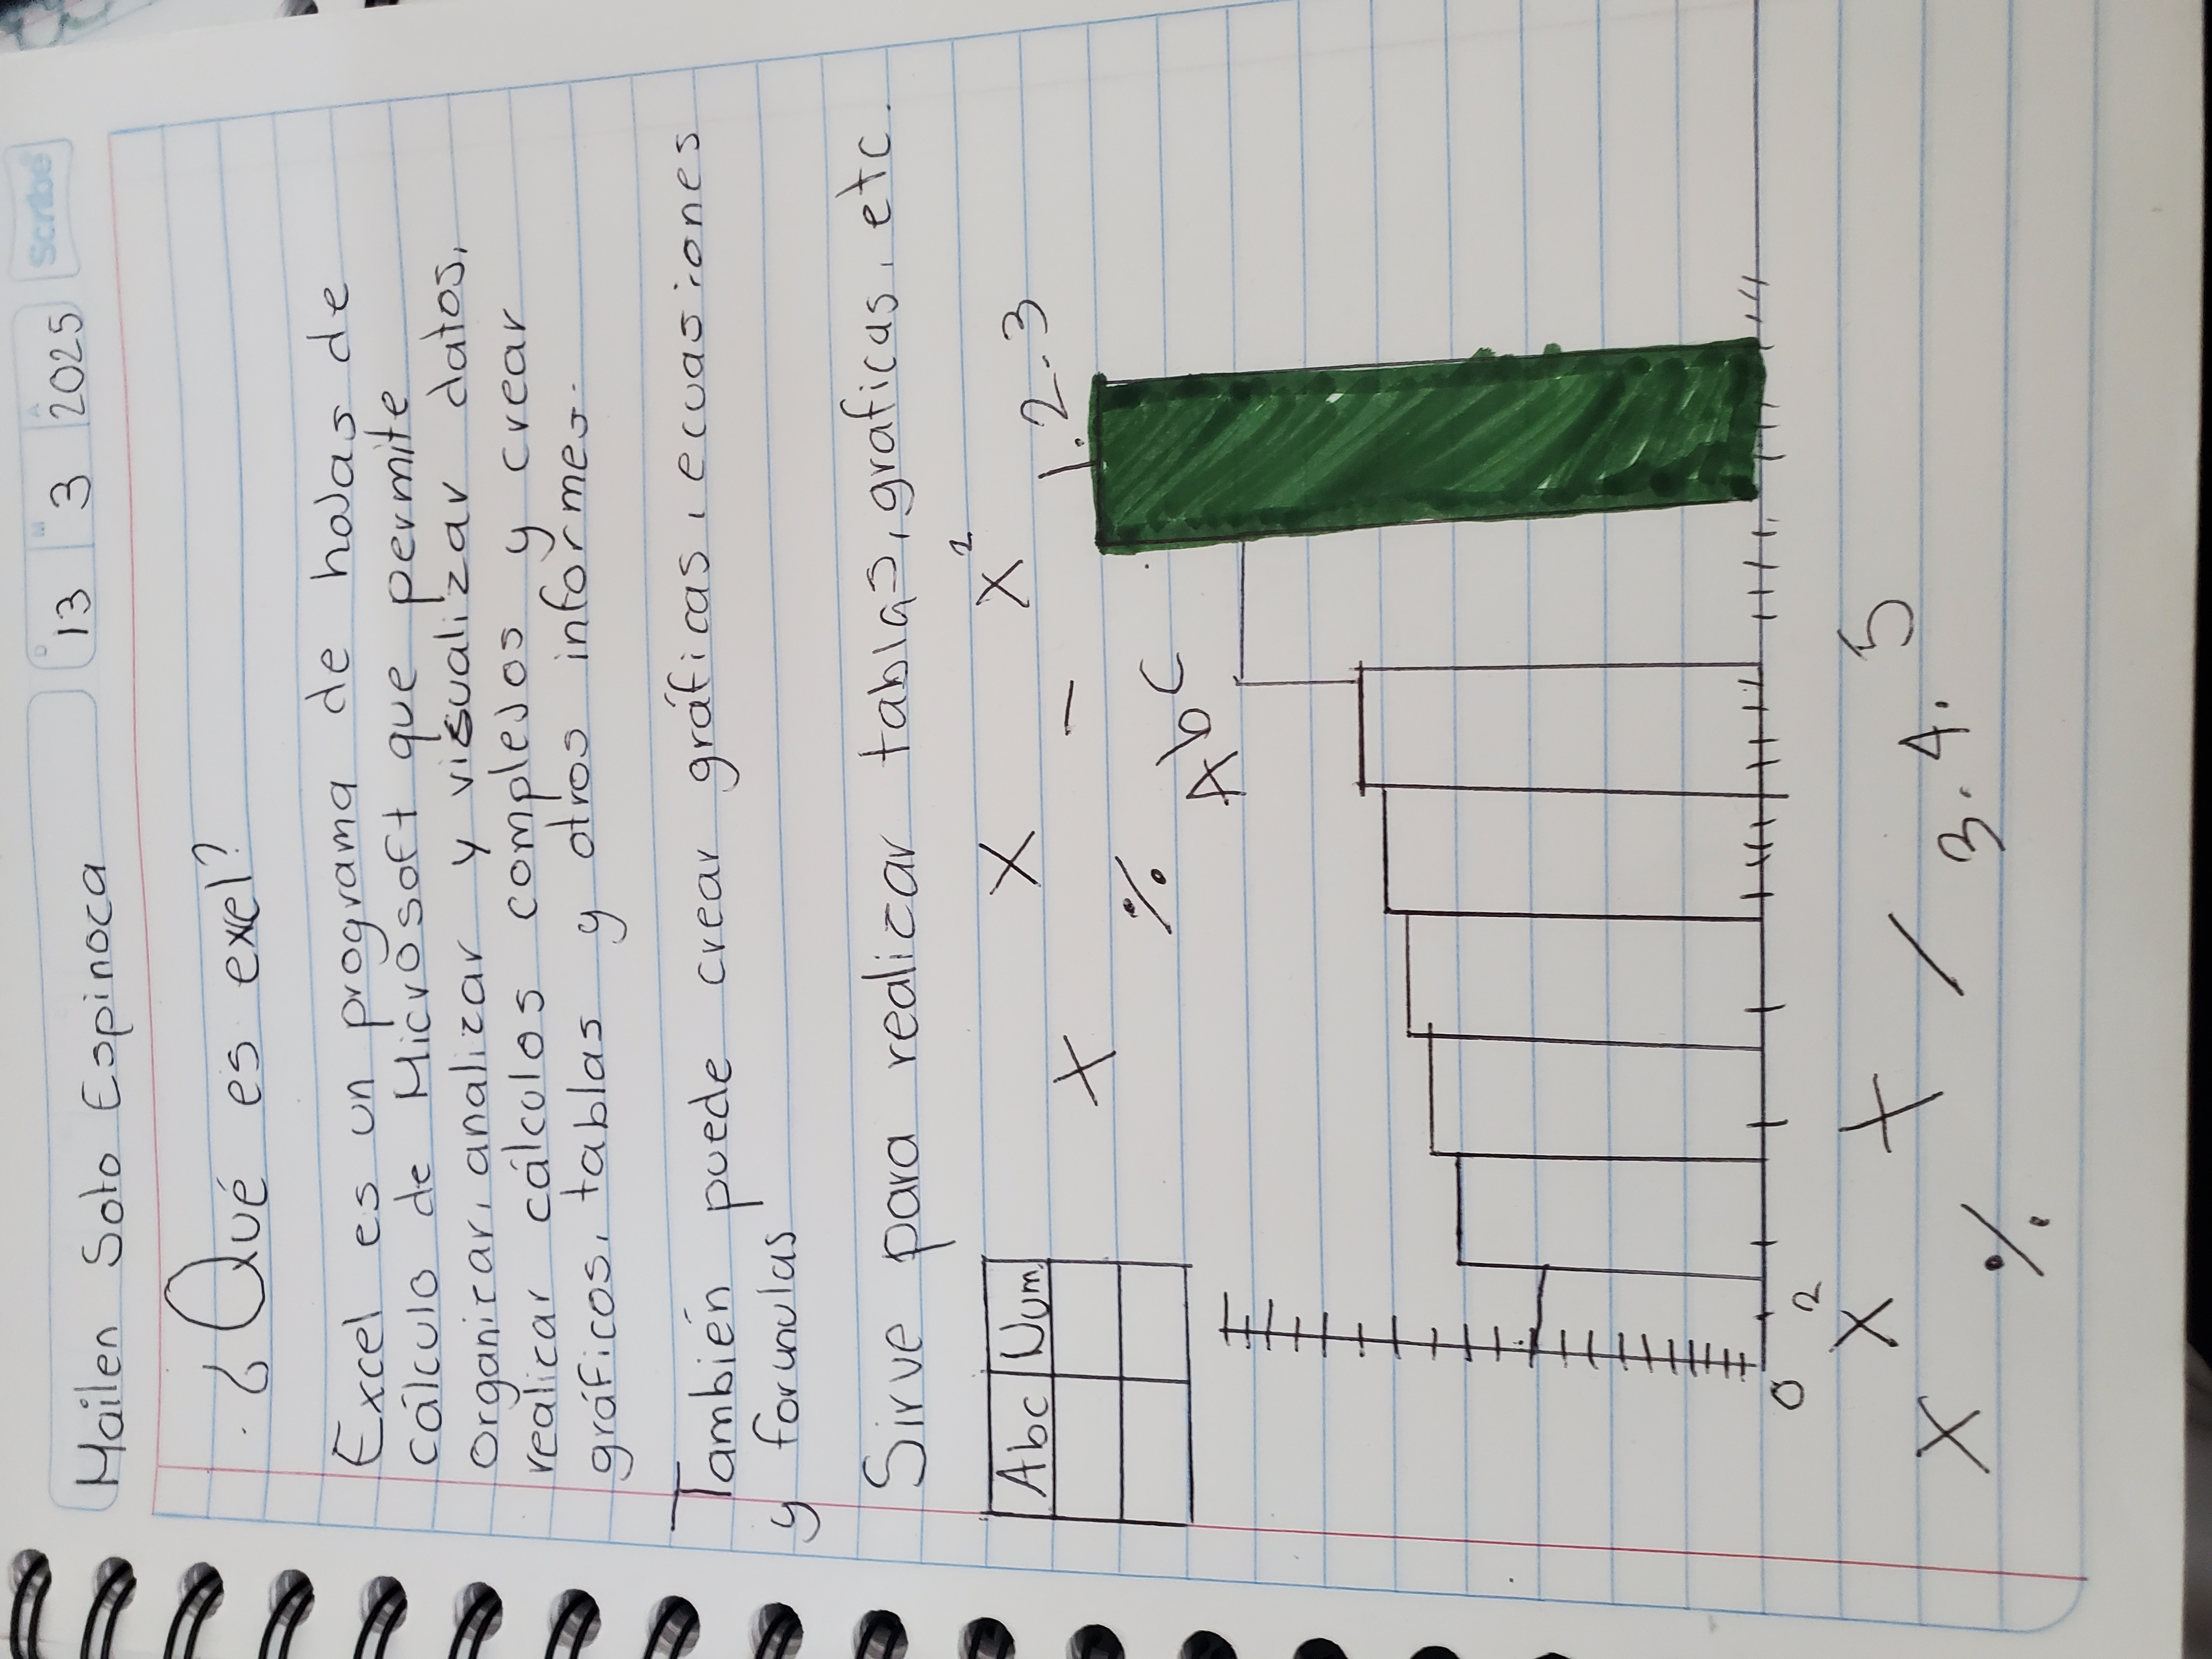 Mailen Soto Espinoca
D 13 M 3 A 2025 Scribe
¿Qué es exel?
Excel es un programa de hojas de
cálculo de Microsoft que permite
organizar, analizar y visualizar datos,
realizar cálculos complejos y crear
gráficos, tablas y otros informes.
También puede crear gráficas, ecuasiones
y forumulas
Sirve para realizar tablas, graficas, etc.
Abc Num.
X X X²
X % - 1.2.3
Abc
0 14
X X² X 5
% / 3. 4.